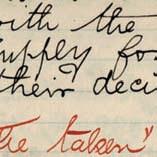 with the
supply for
their deci
be taken"